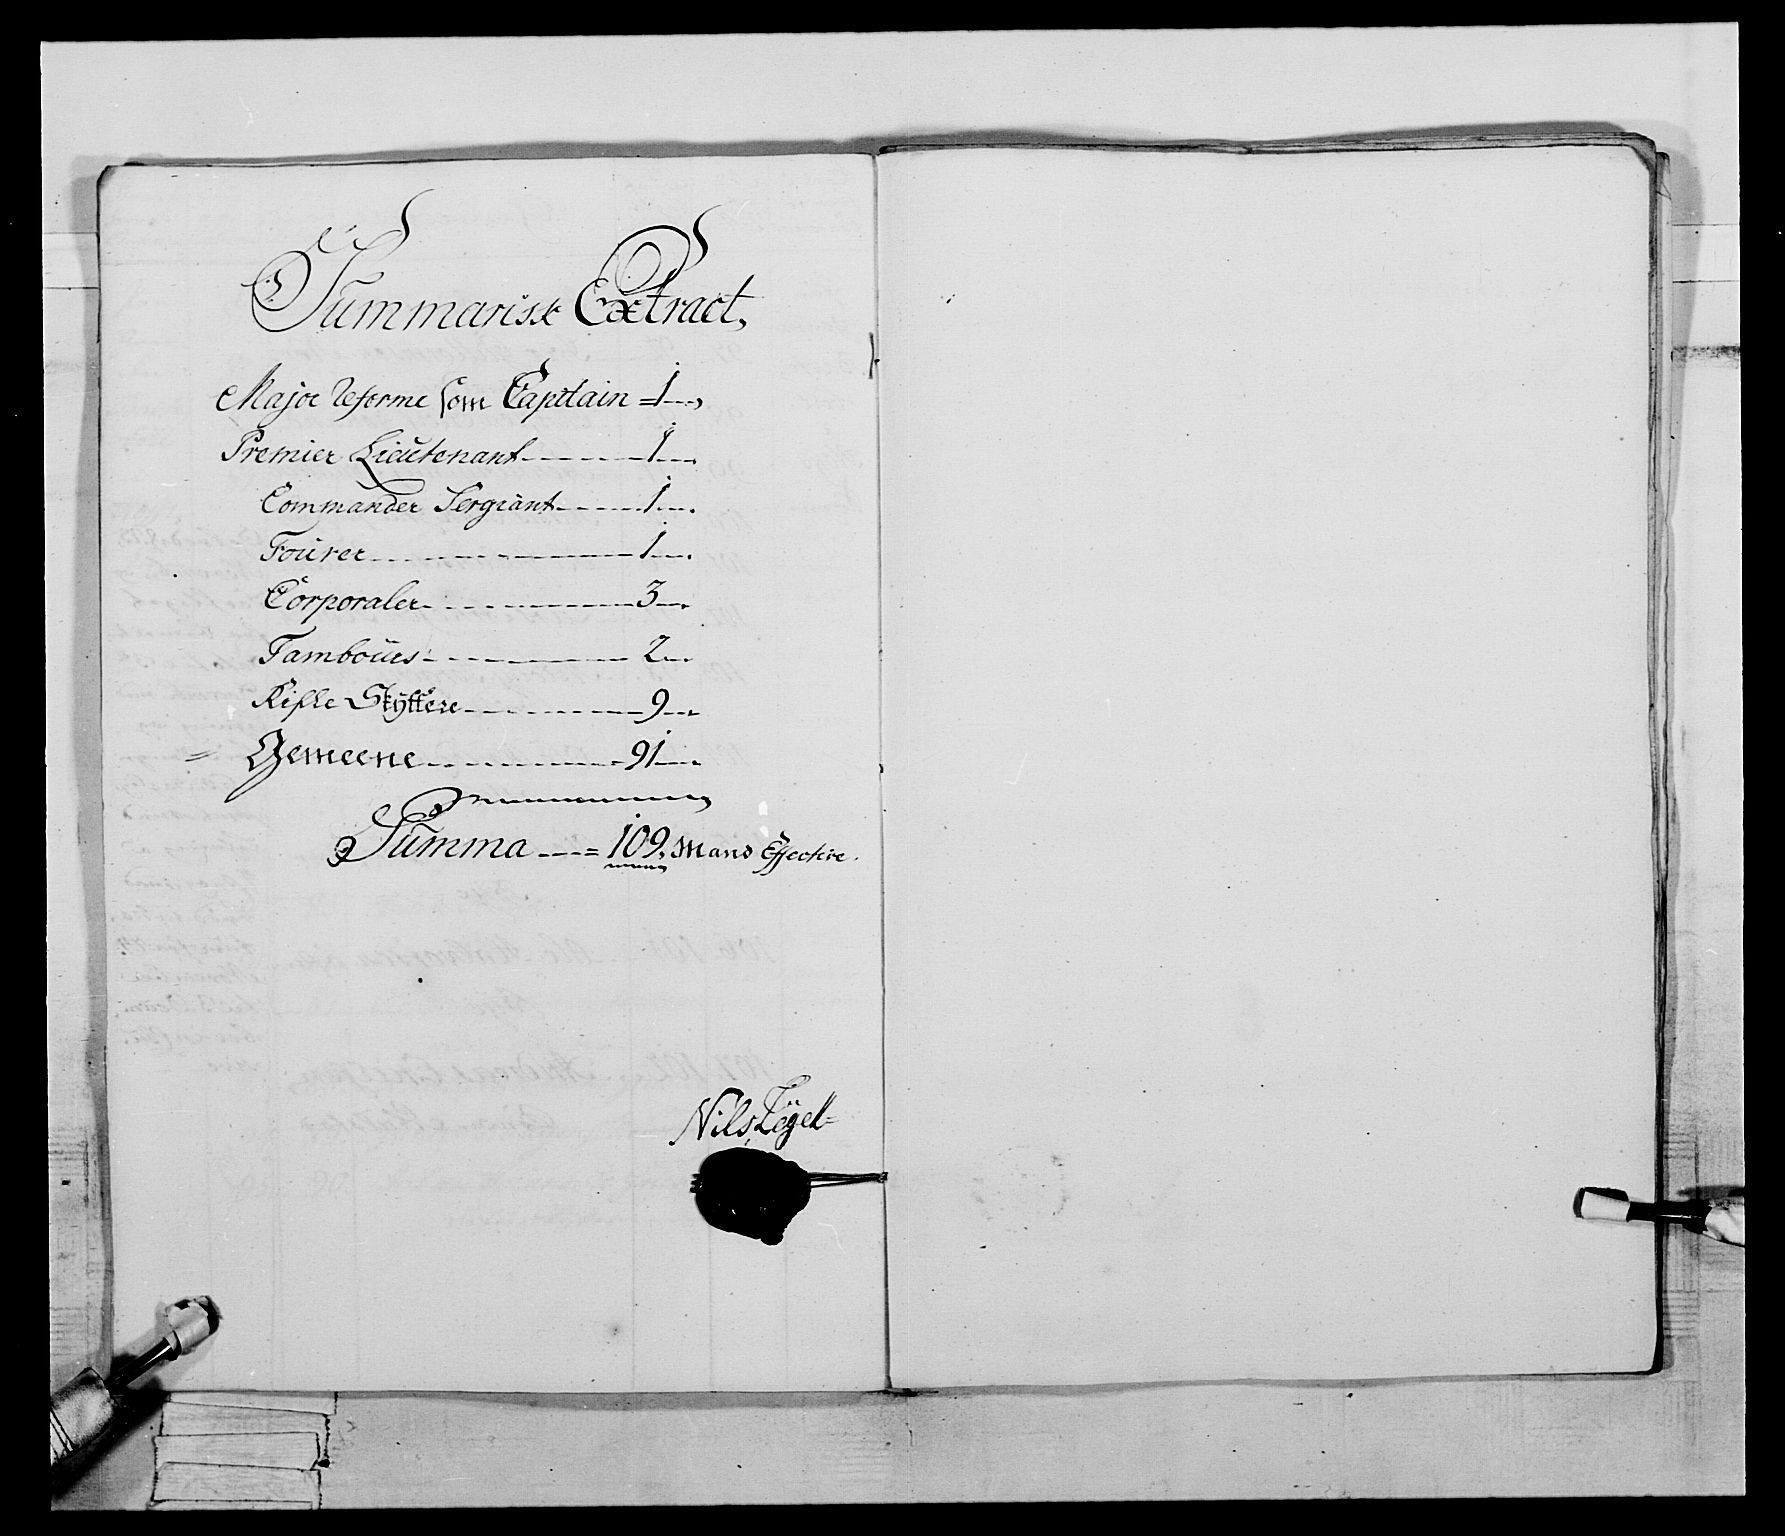 Summarisk Extract,
Major Reforme som Capitain = 1 --,
Premier Lieutenant - - - - - 1 --.
Commander Sergiant - - - - - 1 --.
Fourer - - - - - 1 --.
Corporaler - - - - - 3 --.
Tambours - - - - - 2 --.
Rifle Skyttere - - - - - 9 --.
= Gemeene - - - - - 91 --.
Summa --- = 109. Mand Effective.
Nils